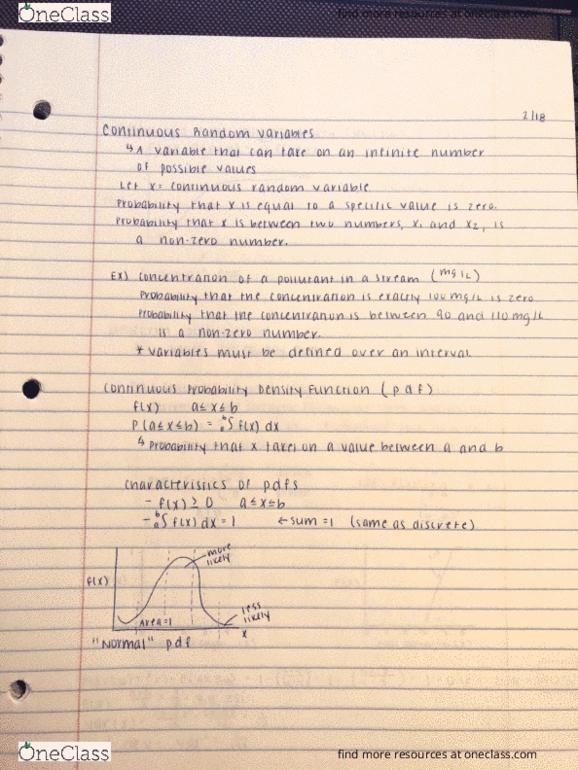 OneClass
find more resources at oneclass.com
2/18
Continuous Random Variables
↳ A variable that can take on an infinite number
of possible values
Let x = continuous random variable
Probability that x is equal to a specific value is zero.
Probability that x is between two numbers, x₁ and x₂, is
a non-zero number.
EX) concentration of a pollutant in a stream (mg/L)
Probability that the concentration is exactly 100 mg/L is zero
Probability that the concentration is between 90 and 110 mg/L
is a non-zero number.
* variables must be defined over an interval
Continuous Probability Density Function (pdf)
f(x) a≤x≤b
P(a≤x≤b) = ᵇₐ∫ f(x) dx
↳ Probability that x takes on a value between a and b
Characteristics of pdfs
- f(x) ≥ 0 a≤x≤b
- ᵇₐ∫ f(x) dx = 1 ← sum = 1 (same as discrete)
more
likely
f(x)
less
likely
Area=1
x
"Normal" pdf
OneClass
find more resources at oneclass.com